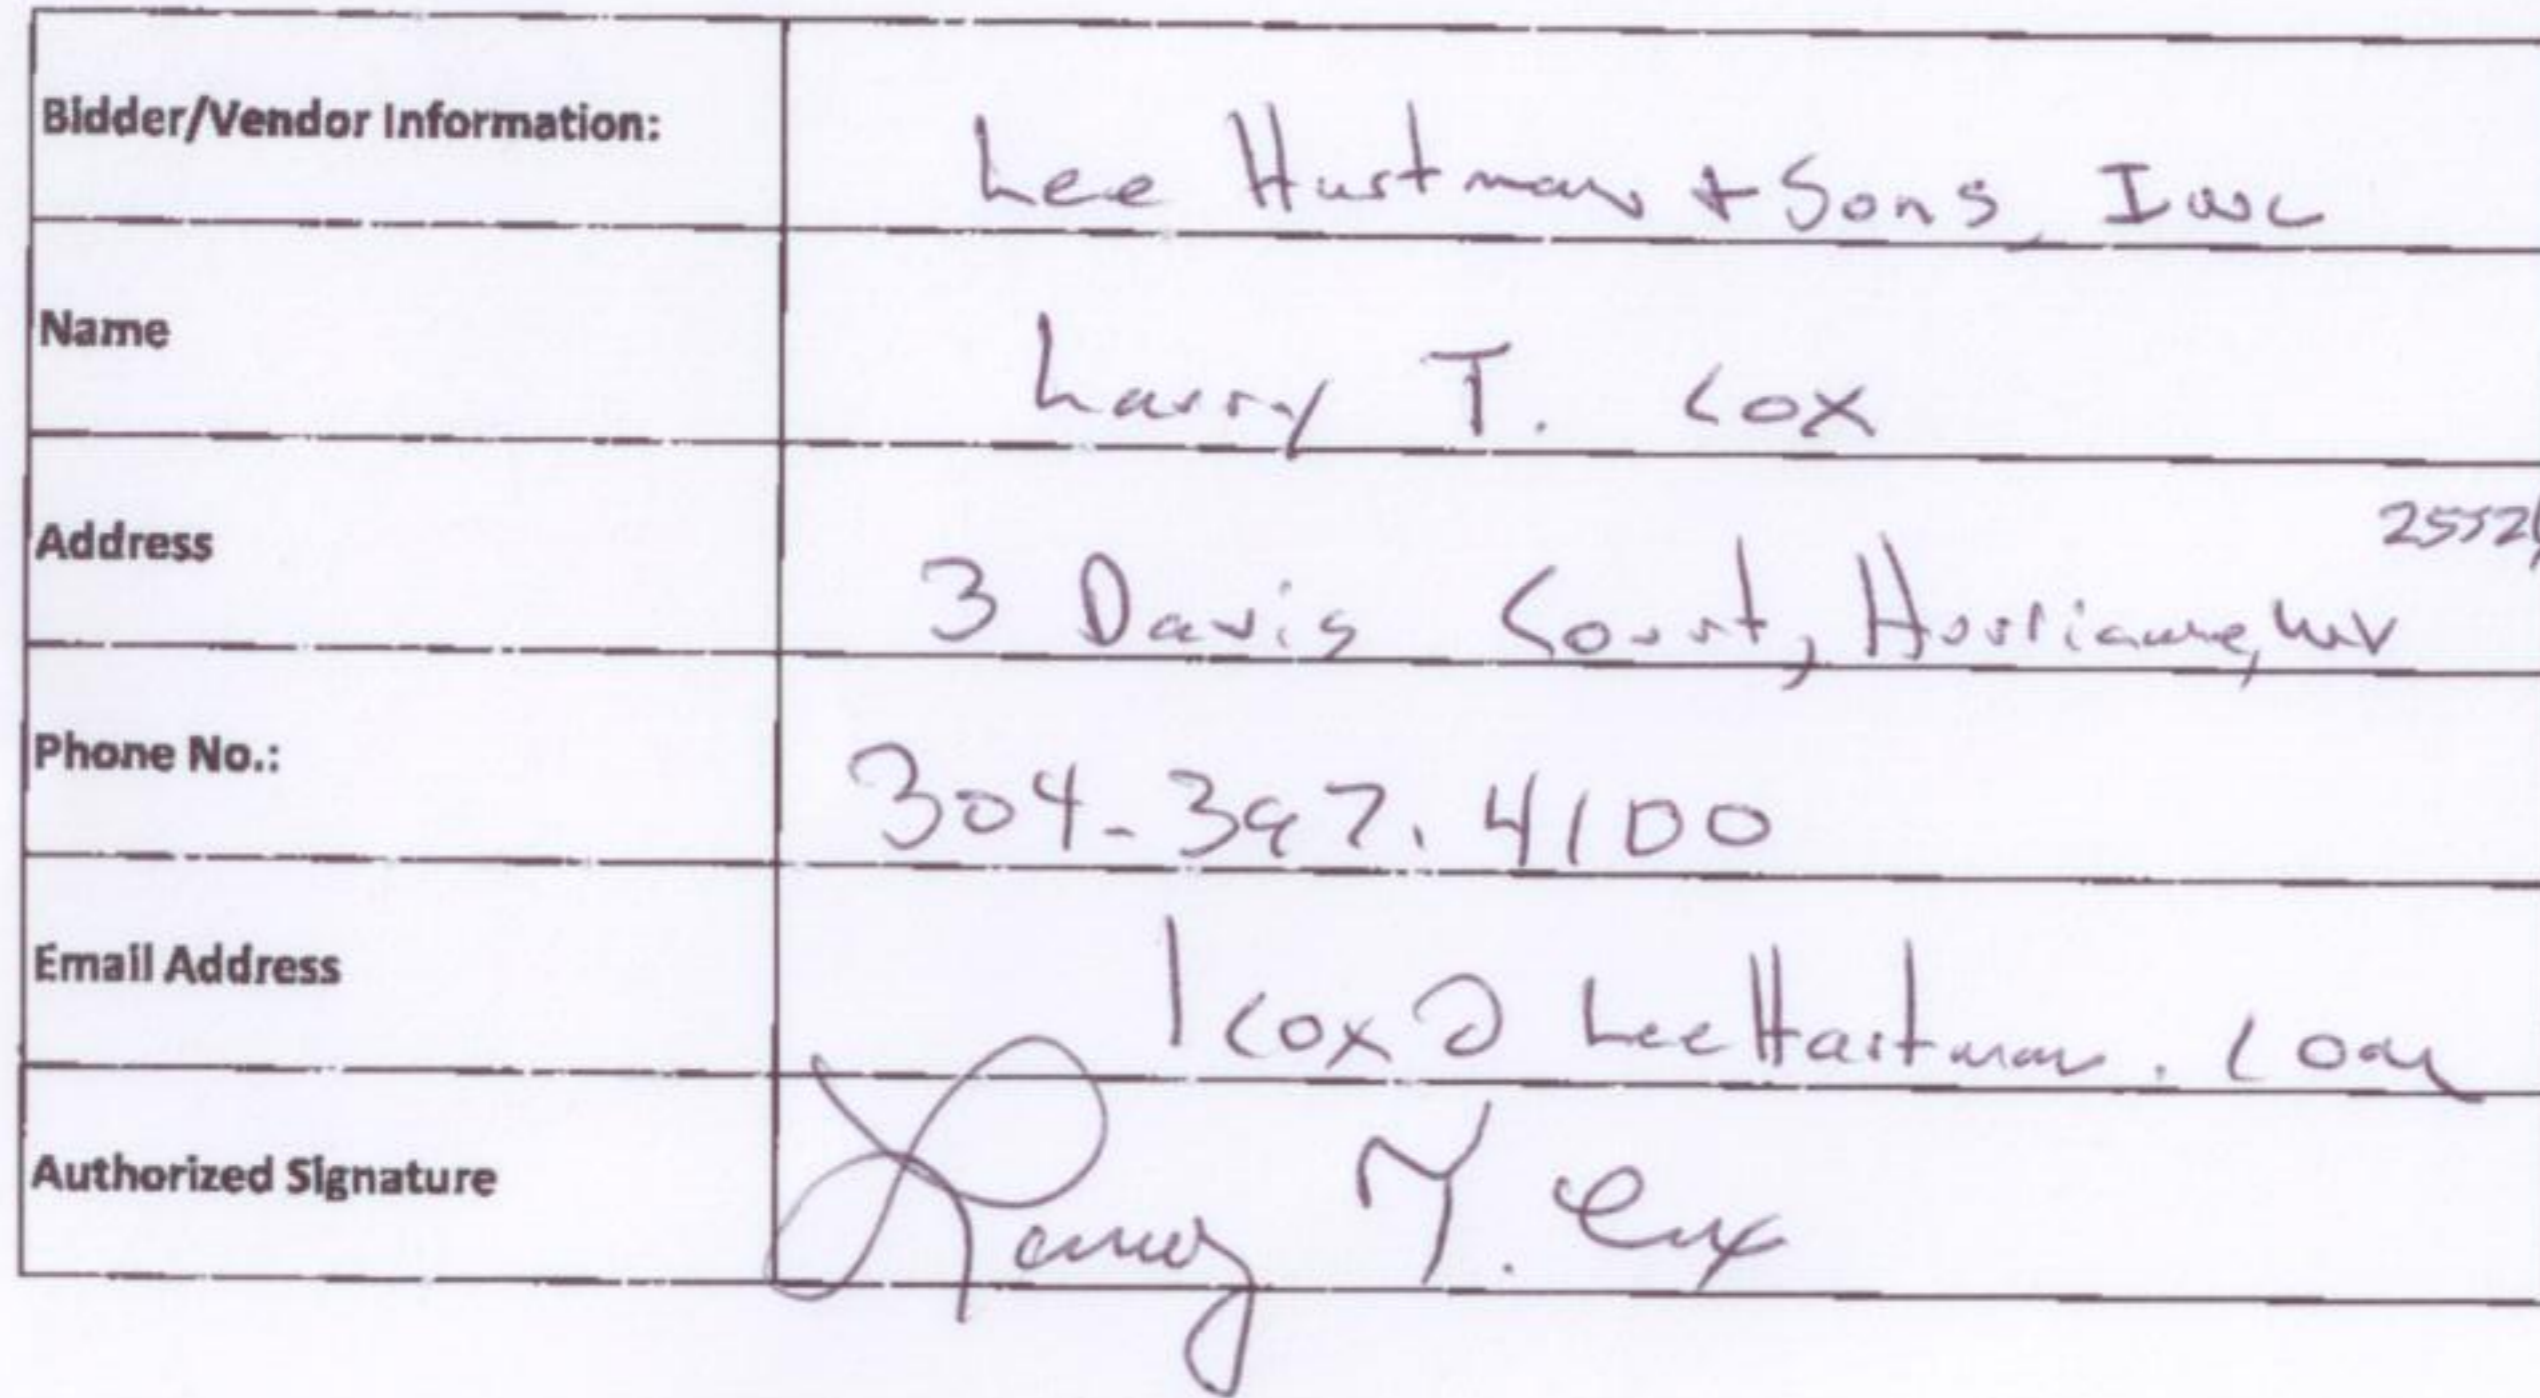 Bidder/Vendor Information: Lee Hartman + Sons, Inc
Name Larry T. Cox
Address 3 Davis Court, Hurricane, WV 2552
Phone No.: 304-397.4100
Email Address lcox@LeeHartman.com
Authorized Signature Larry T. Cox